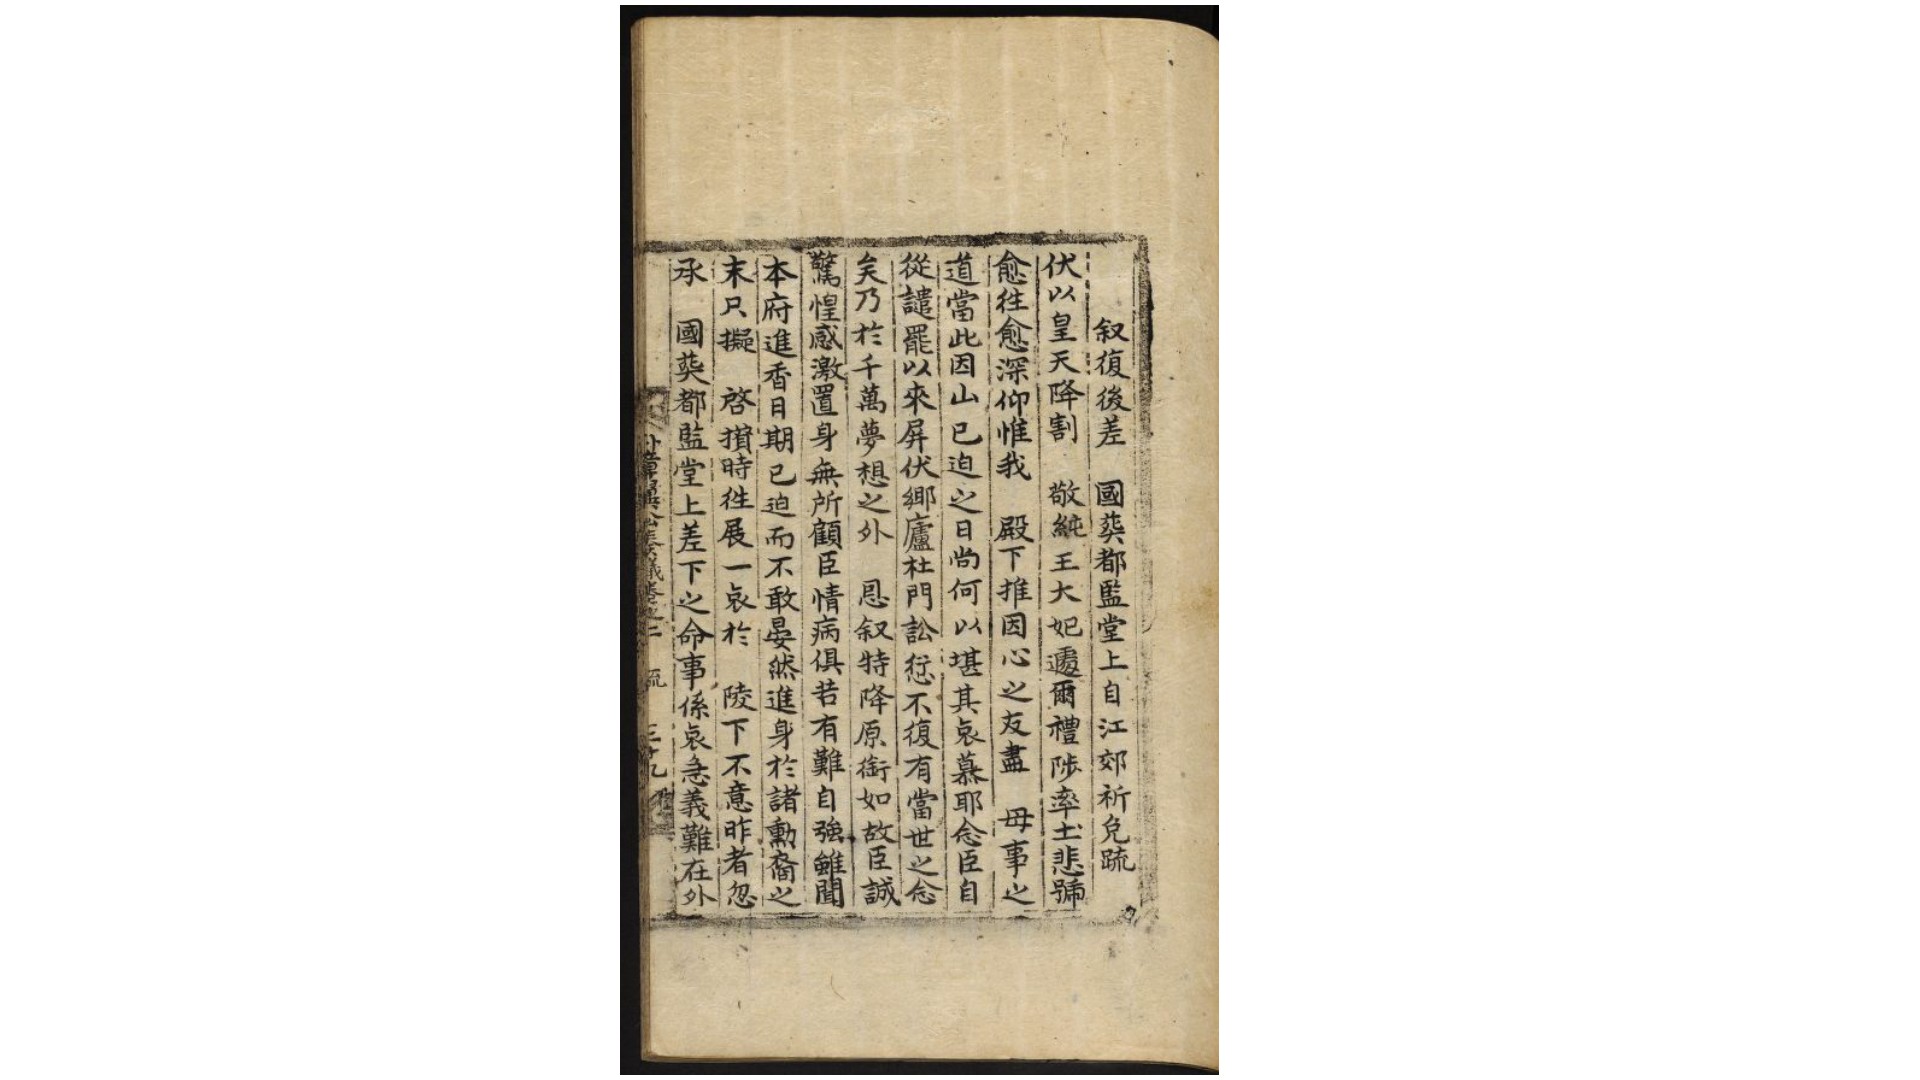 叙復後差 國葬都監堂上自江郊祈免疏
伏以皇天降割 敬純王大妃遽爾禮陟率土悲號
愈往愈深仰惟我 殿下推因心之友盡 毋事之
道當此因山已迫之日尚何以堪其哀慕耶念臣自
從譴罷以來屏伏鄉廬杜門訟愆不復有當世之念
矣乃於千萬夢想之外 恩叙特降原銜如故臣誠
驚惶感激置身無所顧臣情病俱苦有難自強雖聞
本府進香日期已迫而不敢晏然進身於諸勳裔之
末只擬 啓攅時徃展一哀於 陵下不意昨者忽
承 國葬都監堂上差下之命事係哀急義難在外
奏議卷之二 疏